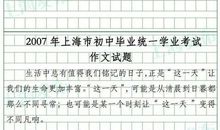 2007年上海市初中毕业统一学业考试
作文试题
生活中总有值得我们铭记的日子,正是“这一天”让
我们的生命更加丰富。“这一天”,可能是从清晨到日暮都
那么不同寻常;也可能是某一个时刻让“这一天”变得
不同凡响。